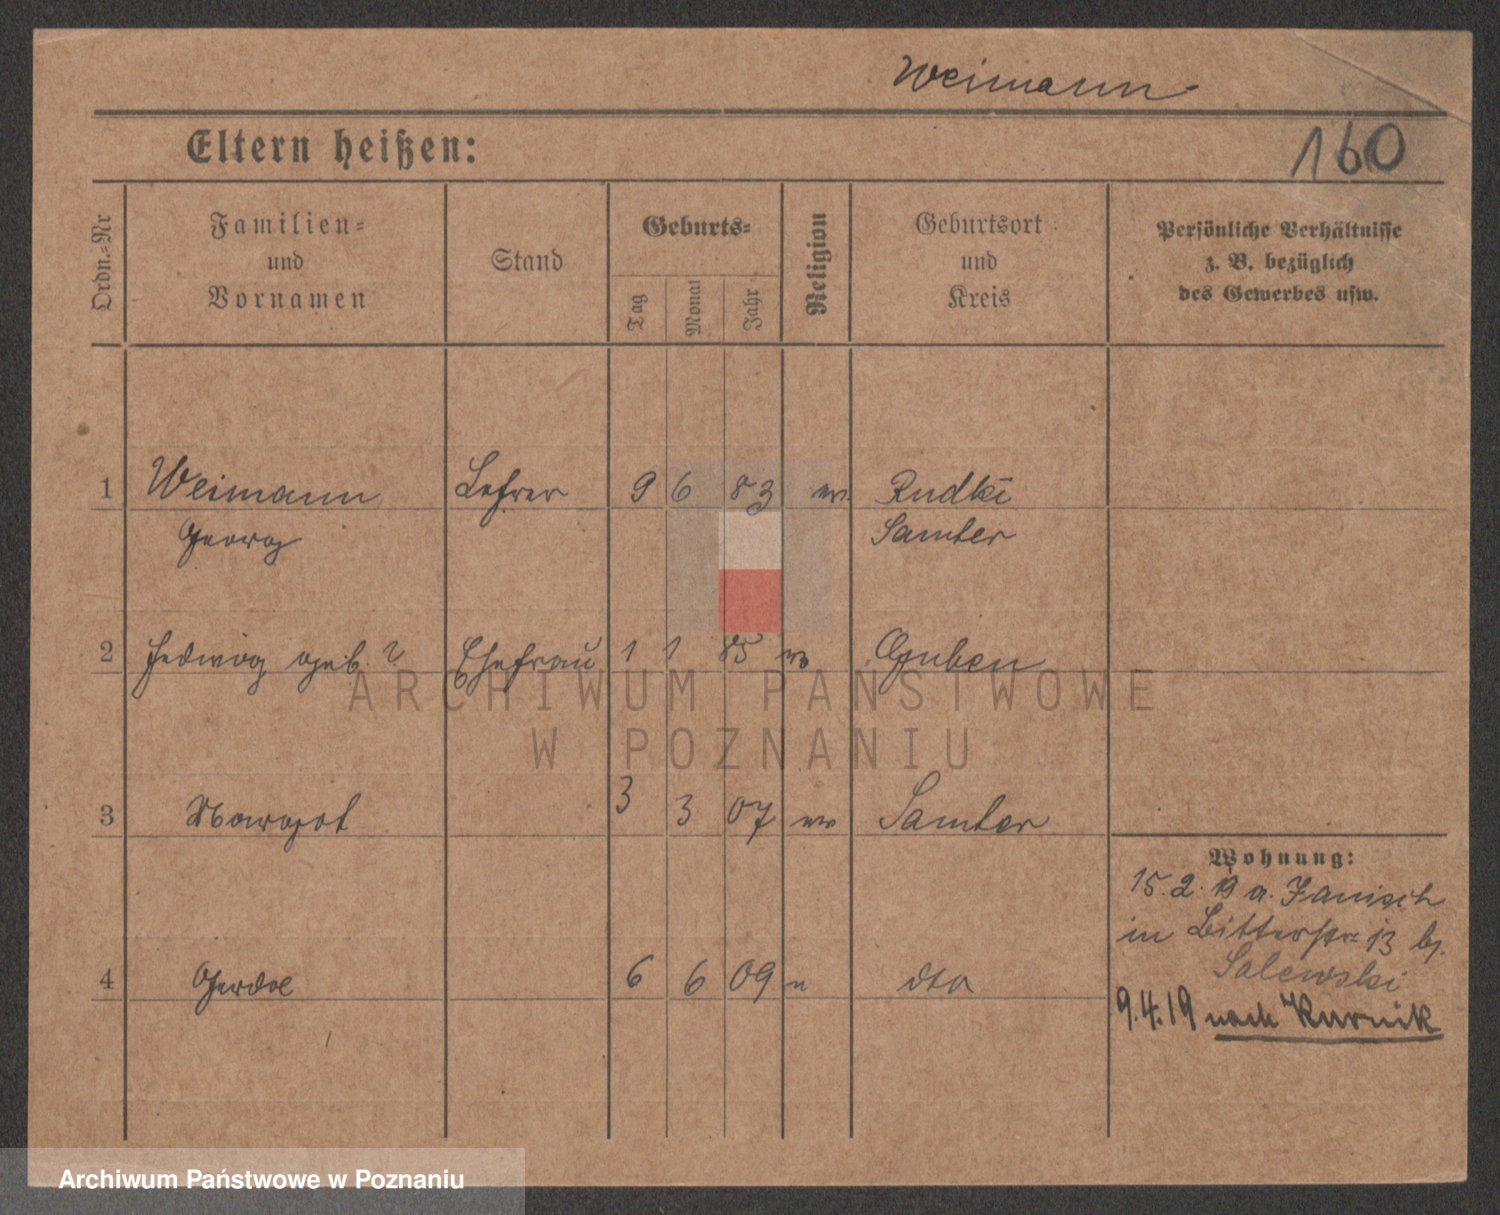 Weimann
160
Eltern heißen:
Ordn.=Nr
Familien=
und
Vornamen
Stand
Geburts=
Tag
Monat
Jahr
Religion
Geburtsort
und
Kreis
Persönliche Verhältnisse
z. B. bezüglich
des Gewerbes usw.
1 Weimann Lehrer 9 6 83 ev Rudki
Georg Samter
2 Hedwig geb. ? Ehefrau 1 1 85 ev Guben
3 Margot 3 3 07 ev Samter
Wohnung:
15.2.19 a. Janisch
in Bitterstr 13 bj.
Salewski
4 Gerda 6 6 09 dto
9.4.19 nach Kurnik
ARCHIWUM PAŃSTWOWE
W POZNANIU
Archiwum Państwowe w Poznaniu